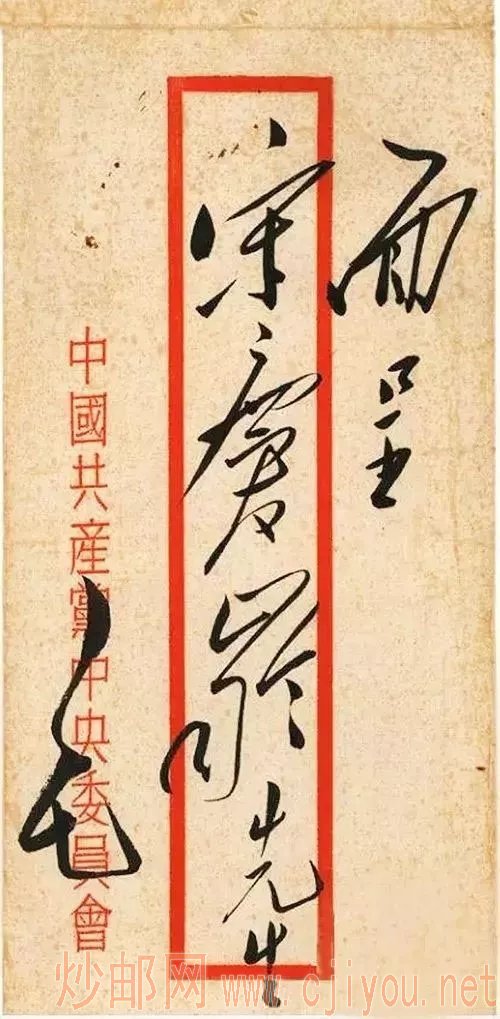 面呈
宋慶齡先生
中國共産黨中央委員會
毛
炒邮网 www.cjiyou.net